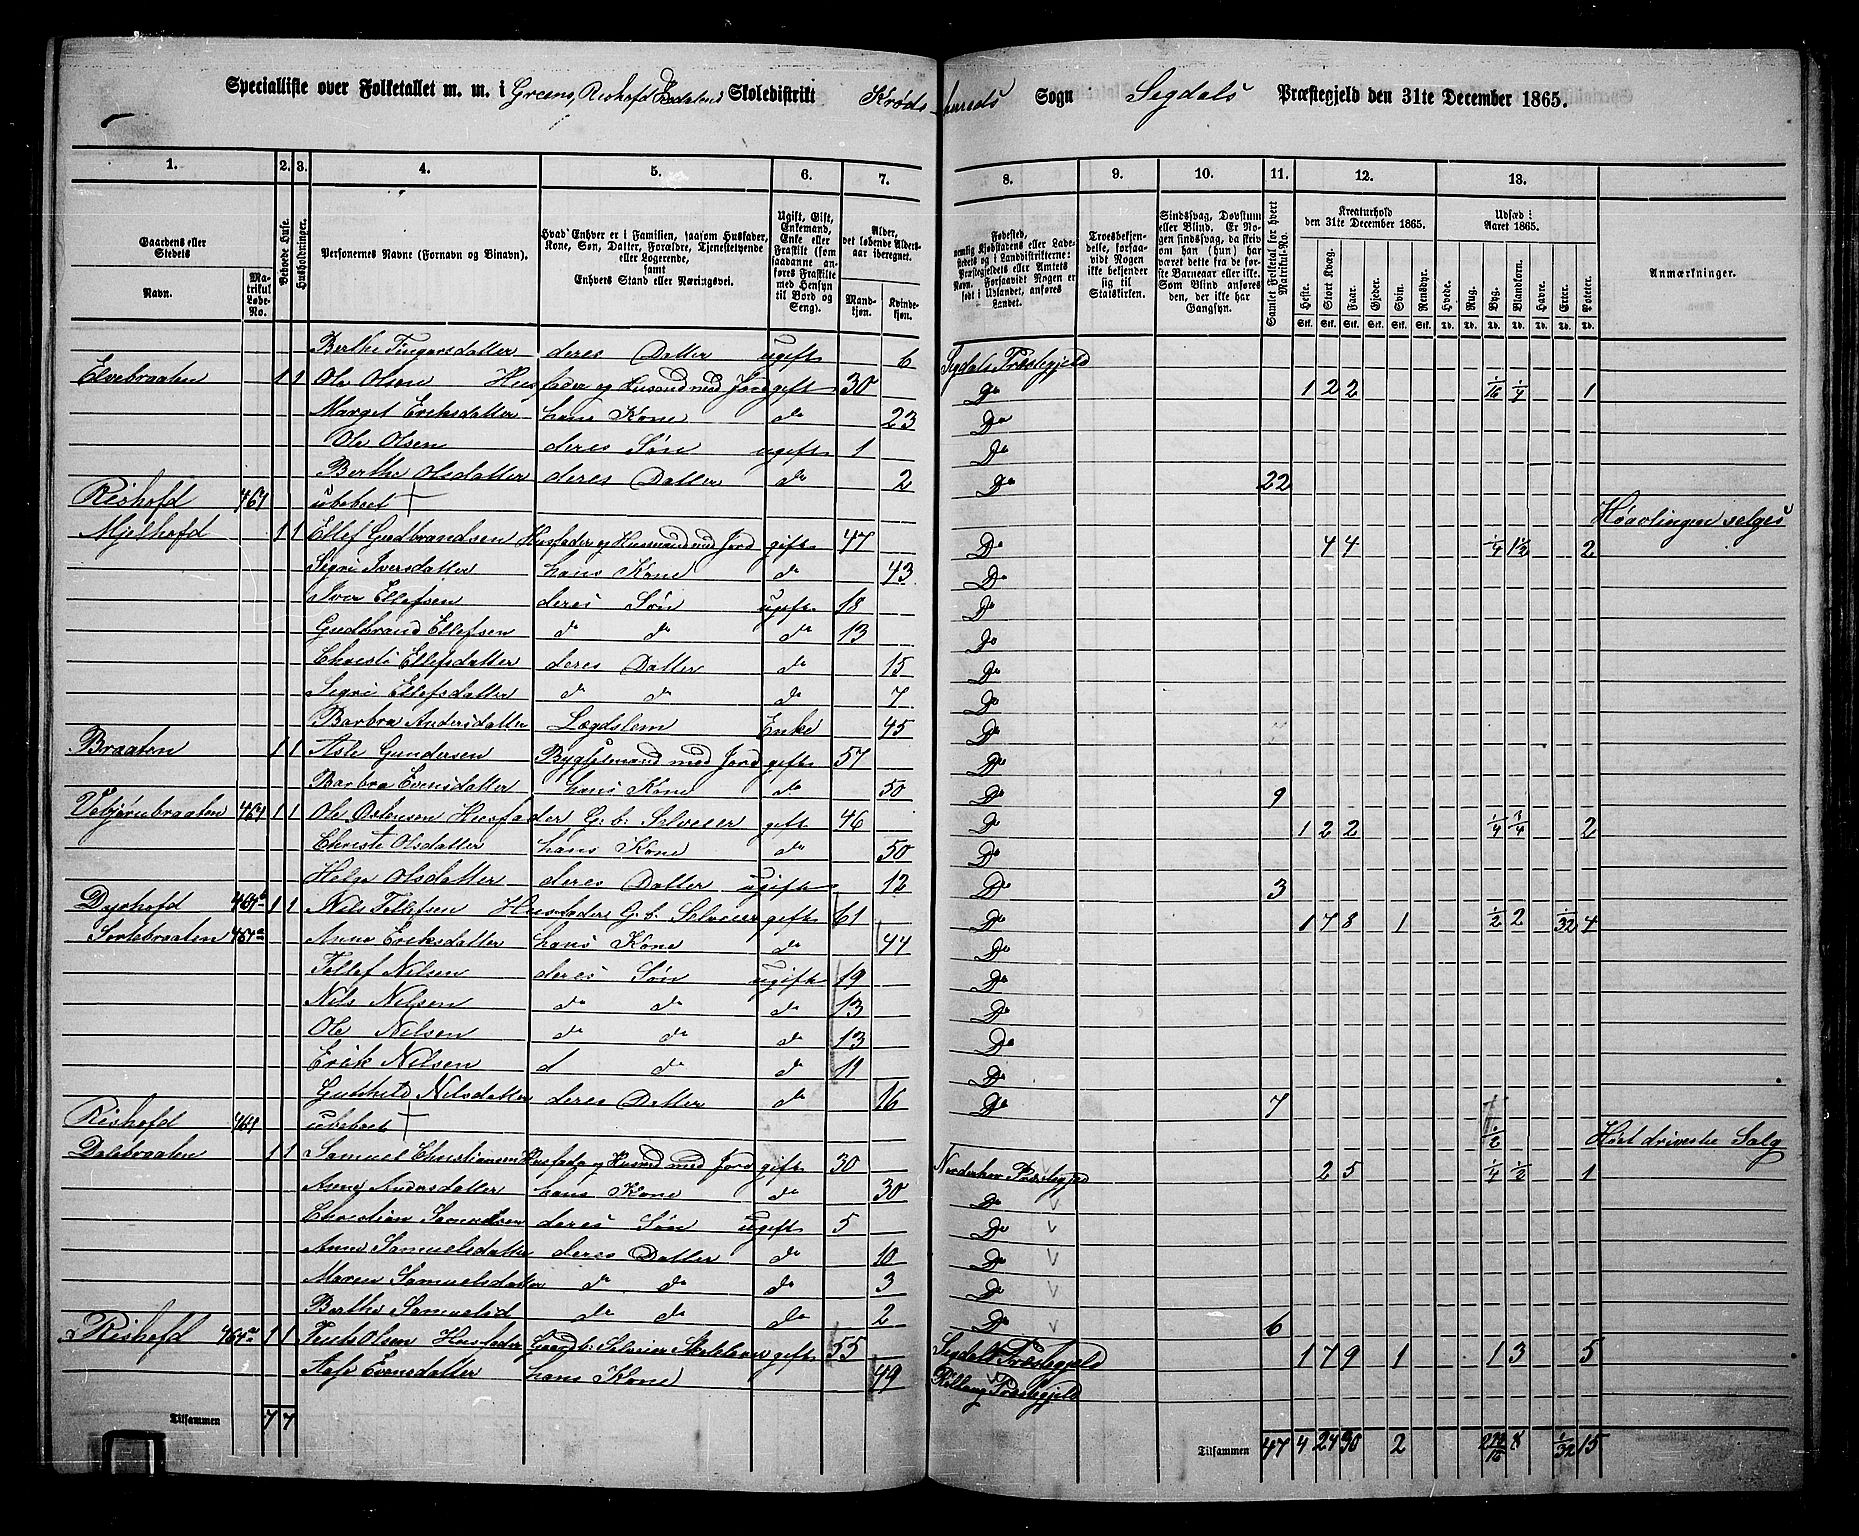 Specialliste over Folketallet m. m. i Greens, Rishofd Skoledistrikt Krødsherreds Sogn Segdals Præstegjeld den 31te December 1865.
1. 2. 3. 4. 5. 6. 7. 8. 9. 10. 11. 12. 13.
Gaardens eller Stedets
Navn.
Matrikul Løbe-No.
Beboede Huse.
Husholdninger.
Personernes Navne (Fornavn og Binavn).
Hvad Enhver er i Familien, saasom Husfader, Kone, Søn, Datter, Forældre, Tjenestetyende eller Logerende, samt Enhvers Stand eller Næringsvei.
Ugift, Gift, Enkemand, Enke eller Fraskilt (som saadanne anføres Fraskilte med Hensyn til Bord og Seng).
Alder, det løbende Alders-aar iberegnet.
Mandkjøn. Kvindekjøn.
Fødested,
Troesbekjendelse, forsaavidt Nogen ikke bekjender sig til Statskirken.
Sindssvag, Døvstum eller Blind. Er Nogen sindssvag, da skriv om han (hun) har været dette fra de første Barneaar eller ikke. Som Blind anføres den, der ikke har Gangsyn.
Samlet Folketal for hvert Matrikul-No.
Kreaturhold den 31te December 1865.
Heste. Stort Kvæg. Faar. Gjeder. Svin. Rensdyr.
Udsæd i Aaret 1865.
Hvede. Rug. Byg. Blandkorn. Havre. Erter. Poteter.
Anmærkninger.
Berthe Fingarsdatter deres Datter ugift 6 Segdals Præstegjeld
Elvebraaten 1 1 Ole Olsen Husfader og Husmand med Jord gift 30 Do 1 2 2 1/16 1/4 1
Marget Eriksdatter hans Kone do 23 Do
Ole Olsen deres Søn ugift 1 Do
Berthe Olsdatter deres Datter do 2 Do 22
Rishofd 467 ubeboet
Mjelhofd 1 1 Ellef Gudbrandsen Husfader og Husmand med Jord gift 47 Do 4 4 1/4 1 1/2 2
Sigri Iversdatter hans Kone do 43 Do
Iver Ellefsen deres Søn ugift 18 Do
Gudbrand Ellefsen do do do 13 Do
Christi Ellefsdatter deres Datter do 15 Do
Sigri Ellefsdatter do do do 7 Do
Barbra Andersdatter Lægdslem Enke 45 Do
Braaten 1 1 Asle Gundersen Bygselmand med Jord gift 57 Do
Barbra Evensdatter hans Kone do 50 Do 9
Vebjørnbraaten 464 1 1 Ole Ostensen Husfader G. b. Selveier gift 46 Do 1 2 2 1/4 3/4 2
Christi Olsdatter hans Kone do 50 Do
Helge Olsdatter deres Datter ugift 12 Do 3
Dyshofd 1 1 Nils Tollefsen Husfader G. b. Selveier gift 61 Do 1 7 8 1 1/2 2 1/32 4
Sortebraaten Anne Eriksdatter hans Kone do 44 Do
Tollef Nilsen deres Søn ugift 19 Do
Nils Nilsen do do do 13 Do
Ole Nilsen do do do 13 Do
Erik Nilsen d do do 11 Do
Gunhild Nilsdatter deres Datter do 16 Do 7
Rishofd ubeboet 1/2
Dalebraaten 1 1 Samuel Christiansen Husfader og Husmd med Jord gift 30 Norderhov Præstegjeld 2 5 1/4 1/2 1
Anne Andersdatter hans Kone do 30 Do
Christian Samuelsen deres Søn ugift 5 Do
Anne Samuelsdatter deres Datter do 10 Do
Maren Samuelsdatter do do do 3 Do
Berthe Samuelsd do do do 2 Do 6
Rishofd 1 1 Olsen Husfader Gaardb: Selveier gift 55 Segdals Præstegjeld 1 7 9 1 1 3 5
Aase Evensdatter hans Kone 49 Rollaug Præstegjeld
Tilsammen 7 7 Tilsammen 47 4 24 30 2 8 1/32 15